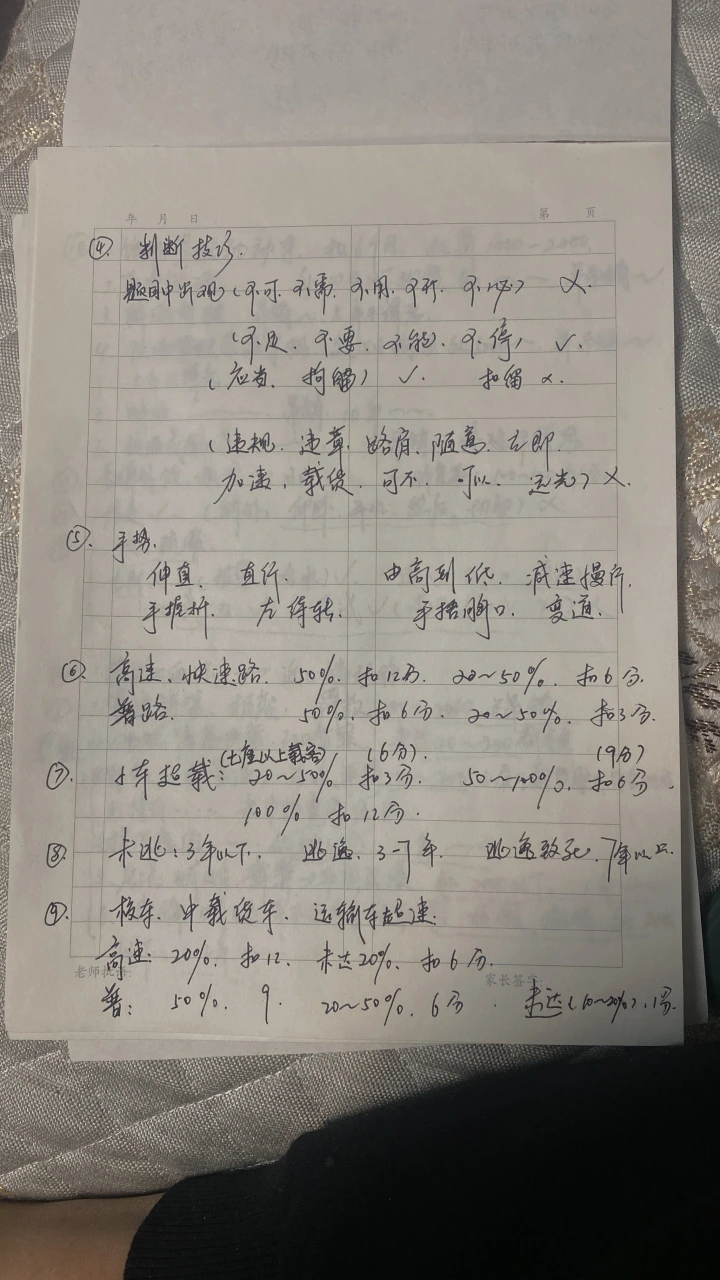 年 月 日 第 页
④ 判断技巧.
题目中出现(不可. 不需. 不用. 不许. 不必) ×.
(不足. 不要. 不能). 不停) ✓.
(应当. 拘留) ✓. 扣留 ×.
(违规. 违章. 路肩. 随意. 立即.
加速. 载货. 可不. 可以. 远光) ×.
⑤. 手势.
伸直. 直行. 由高到低. 减速慢行.
手握拆. 左待转. 手捂胸口. 变道.
⑥ 高速. 快速路. 50%. 扣12分. 20~50%. 扣6分.
普路. 50%. 扣6分. 20~50%. 扣3分.
(七座以上载客) (6分). (9分)
⑦. 车超载: 20~50% 扣3分. 50~100%. 扣6分.
100% 扣12分.
⑧. 未逃: 3年以下. 逃逸. 3-7年. 逃逸致死. 7年以上.
⑨. 校车. 中载货车. 运输车超速:
高速: 20%. 扣12. 未达20%. 扣6分.
老师批语: 家长签字:
普: 50%. 9. 20~50%. 6分. 未达(10~20%). 1分.